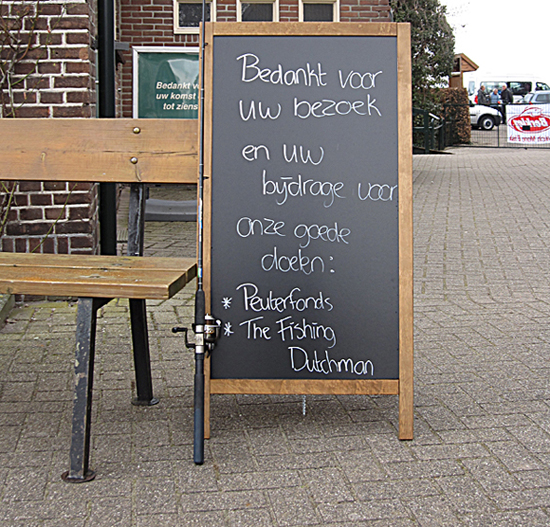 Bedankt voor
uw bezoek
en uw
bijdrage voor
onze goede
doelen:
* Peuterfonds
* The Fishing
Dutchman
Bedankt v
uw komst
tot ziens